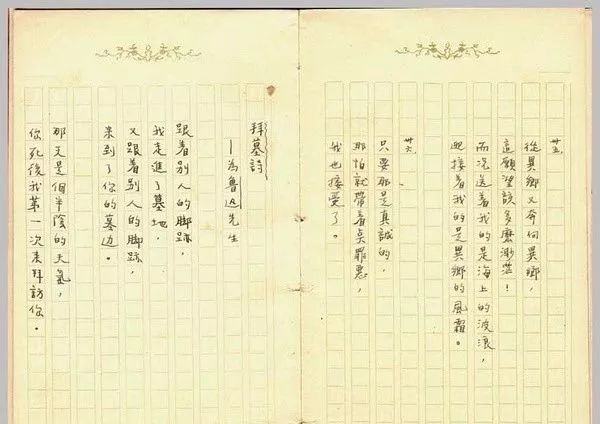 卅五、
從異鄉又奔向異鄉，
這願望該多麼渺茫！
而況送着我的是海上的波浪，
迎接着我的是異鄉的風霜。
卅六、
只要那是真誠的，
那怕就帶着点罪惡，
我也接受了。
拜墓詩
—為魯迅先生
跟着别人的脚跡，
我走進了墓地，
又跟着别人的脚跡，
来到了你的墓边。
那天是個半陰的天氣，
你死後我第一次来拜訪你。